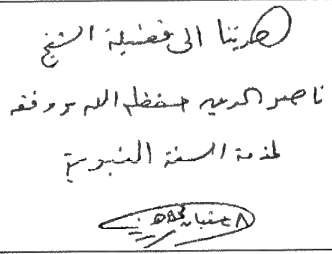 هديتنا الى فضيلة الشيخ
ناصر الدين حفظه الله ووفقه
لخدمة السنة النبوية
٨ شعبان